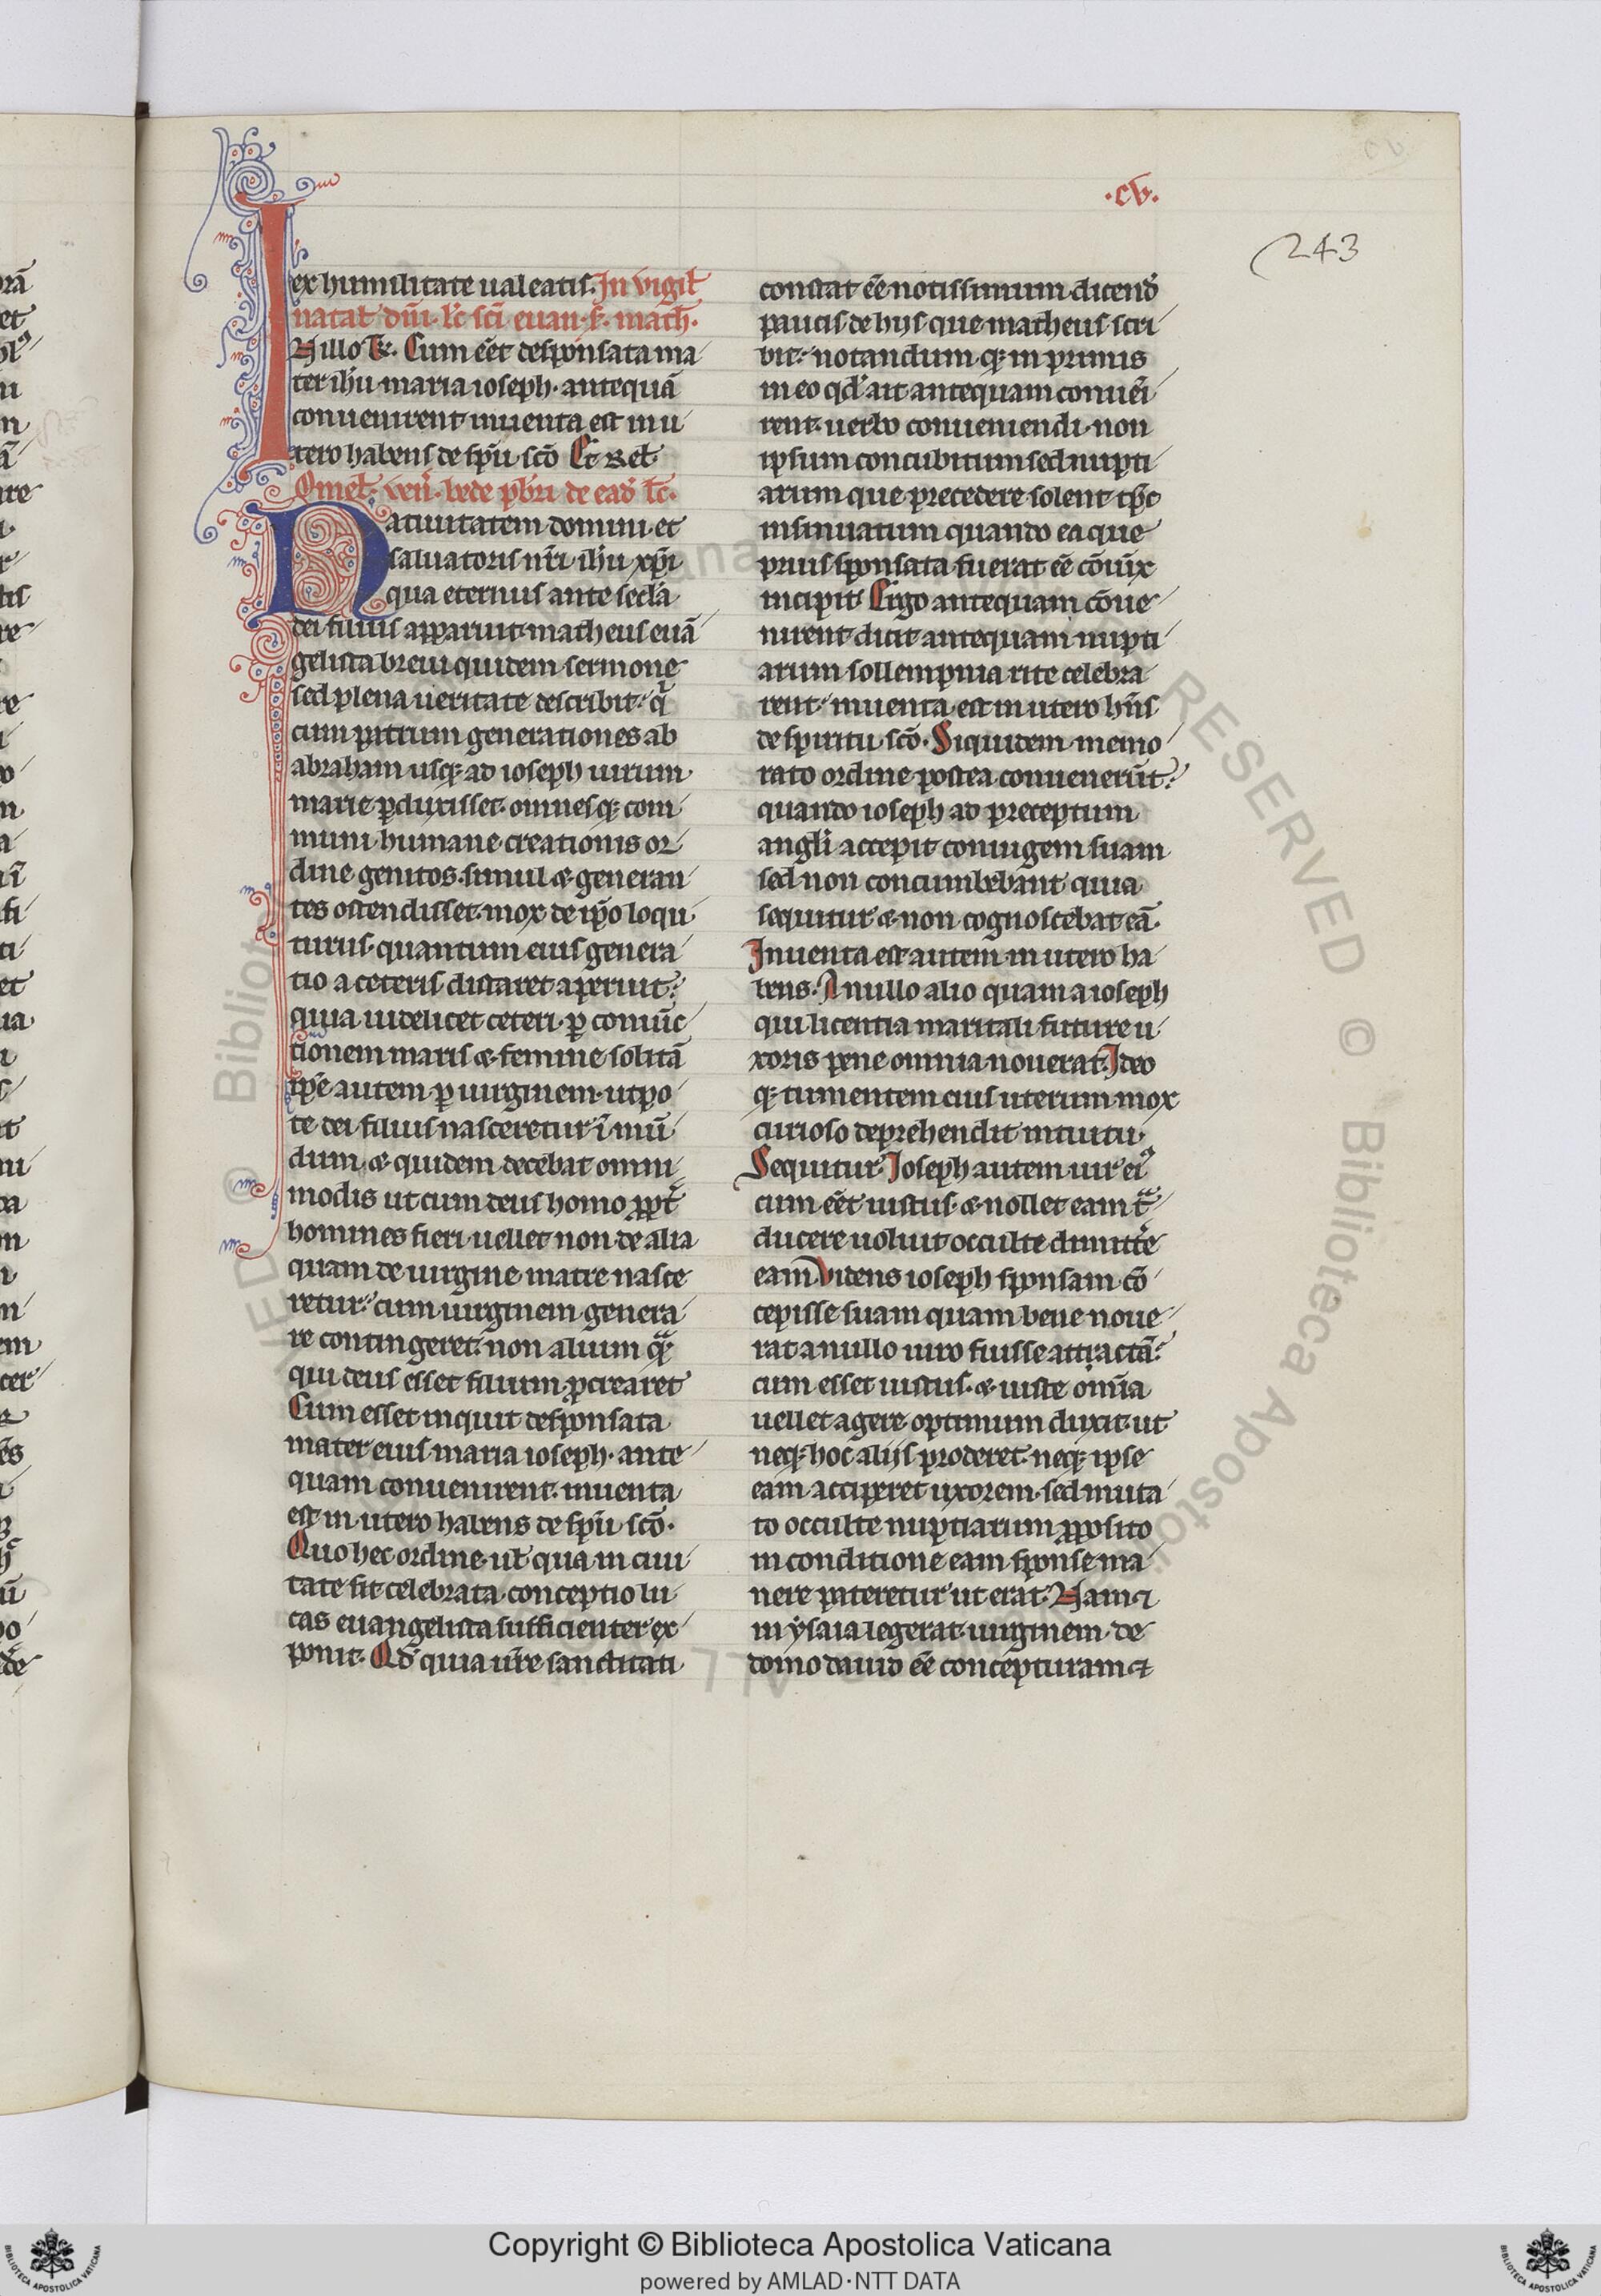 .cv.
243
ex humilitate ualeatis. In vigil̄
natal̄ dn̄i. lc̄ sc̄i euan. s̄. math̄.
IN illo t̄. Cum eēt desponsata ma
ter ih̄u maria ioseph. antequā
conuenirent inuenta est in u
tero habens de sp̄u sc̄o Et Rel̄.
Omel̄. ven̄. bede pb̄ri de ead̄ lc̄.
Natiuitatem domini et
saluatoris nr̄i ih̄u xp̄i
qua eternus ante sec̄la
dei filius apparuit matheus euā
gelista breui quidem sermone
sed plena ueritate describit. q̄
cum patrum generationes ab
abraham usq; ad ioseph uirum
marie ꝑduxisset. omnesq; com
muni humane creationis or
dine genitos simul ⁊ generan
tes ostendisset. mox de ip̄o loqu
turus. quantum eius genera
tio a ceteris distaret aperuit.
quia uidelicet ceteri ꝑ coniūc
tionem maris ⁊ femine solitā
ip̄e autem ꝑ uirginem. utpo
te dei filius nasceretur ī mū
dum. ⁊ quidem decebat omni
modis ut cum deus homo ꝓpt̄
homines fieri uellet non de alia
quam de uirgine matre nasce
retur. cum uirginem genera
re contingeret. non alium q̄
qui deus esset filium ꝓcrearet
Cum esset inquit desponsata
mater eius maria ioseph. ante
quam conuenirent. inuenta
est in utero habens de sp̄u sc̄o.
Quo hec ordine. ul̄ qua in ciui
tate sit celebrata conceptio lu
cas euangelista sufficienter ex
ponit. Qd̄ quia ur̄e sanctitati
constat eē notissimum dicend̄
paucis de hijs que matheus scri
bit. notandum q; in primis
in eo qd̄ ait antequam conuēi
rent. uerbo conueniendi. non
ipsum concubitum sed nupti
arum que precedere solent tp̄c
insinuatum quando ea que
prius sponsata fuerat eē cōiūx
incipit Ergo antequam cōue
nirent dicit antequam nupti
arum sollempnia rite celebra
rent. inuenta est in utero hn̄s
de spiritu sc̄o. Siquidem memo
rato ordine postea conuenerūt.
quando ioseph ad preceptum
angl̄i accepit coniugem suam
sed non concumbebant quia
sequitur ⁊ non cognoscebat eā.
Inuenta est autem in utero ha
bens. A nullo alio quam a ioseph
qui licentia maritali future u
xoris pene omnia nouerat. Ideo
q; tumentem eius uterum mox
curioso deprehendit intuitu.
Sequitur Ioseph autem uir ei9
cum eēt iustus. ⁊ nollet eam tª
ducere uoluit occulte dimitt̄e
eam Videns ioseph sponsam cō
cepisse suam quam bene noue
rat a nullo uiro fuisse attractā.
cum esset iustus. ⁊ iuste omīa
uellet agere optimum duxit. ut
neq; hoc alijs proderet. neq; ipse
eam acciperet uxorem. sed muta
to occulte nuptiarum ꝓposito
in conditione eam sponse ma
nere pateretur ut erat. Nam ⁊
in ysaia legerat. uirginem de
domo dauid eē concepturam ⁊
Copyright © Biblioteca Apostolica Vaticana
powered by AMLAD·NTT DATA